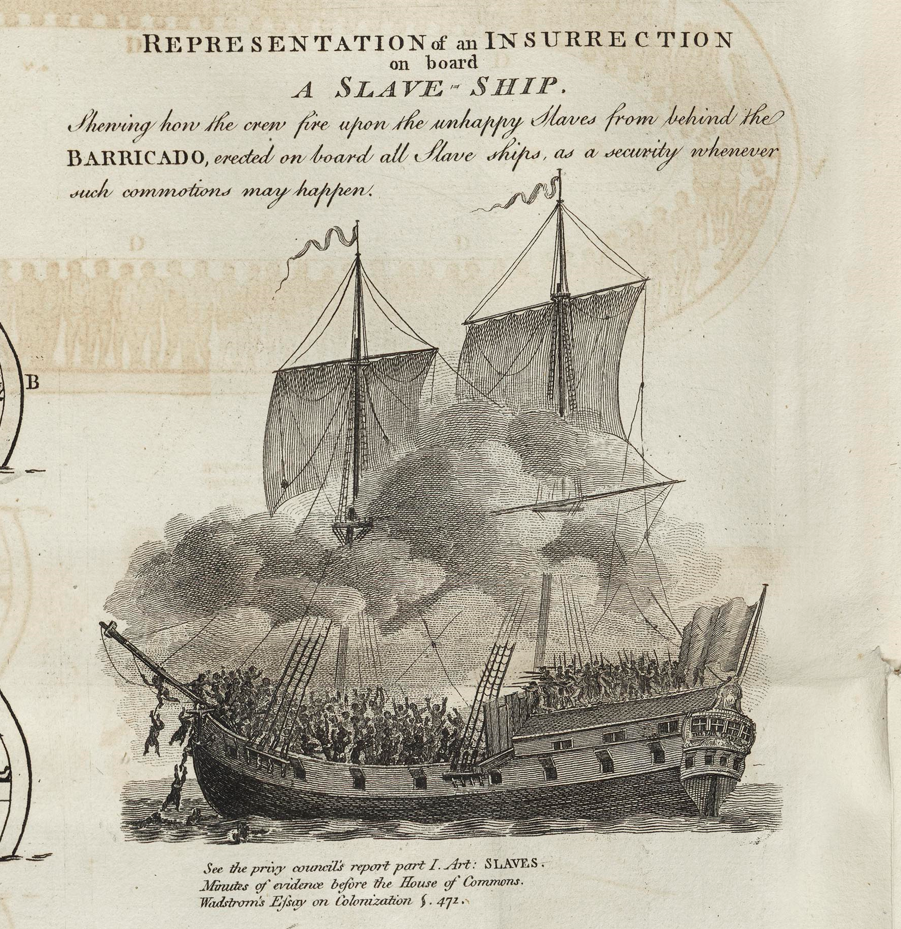 REPRESENTATION of an INSURRECTION
on board
A SLAVE-SHIP.
Shewing how the crew fire upon the unhappy Slaves from behind the
BARRICADO, erected on board all Slave ships, as a security whenever
such commotions may happen.
D
D
D
B
See the privy council's report part I. Art: SLAVES.
Minutes of evidence before the House of Commons.
Wadstrom's Eſsay on Colonization §. 471.